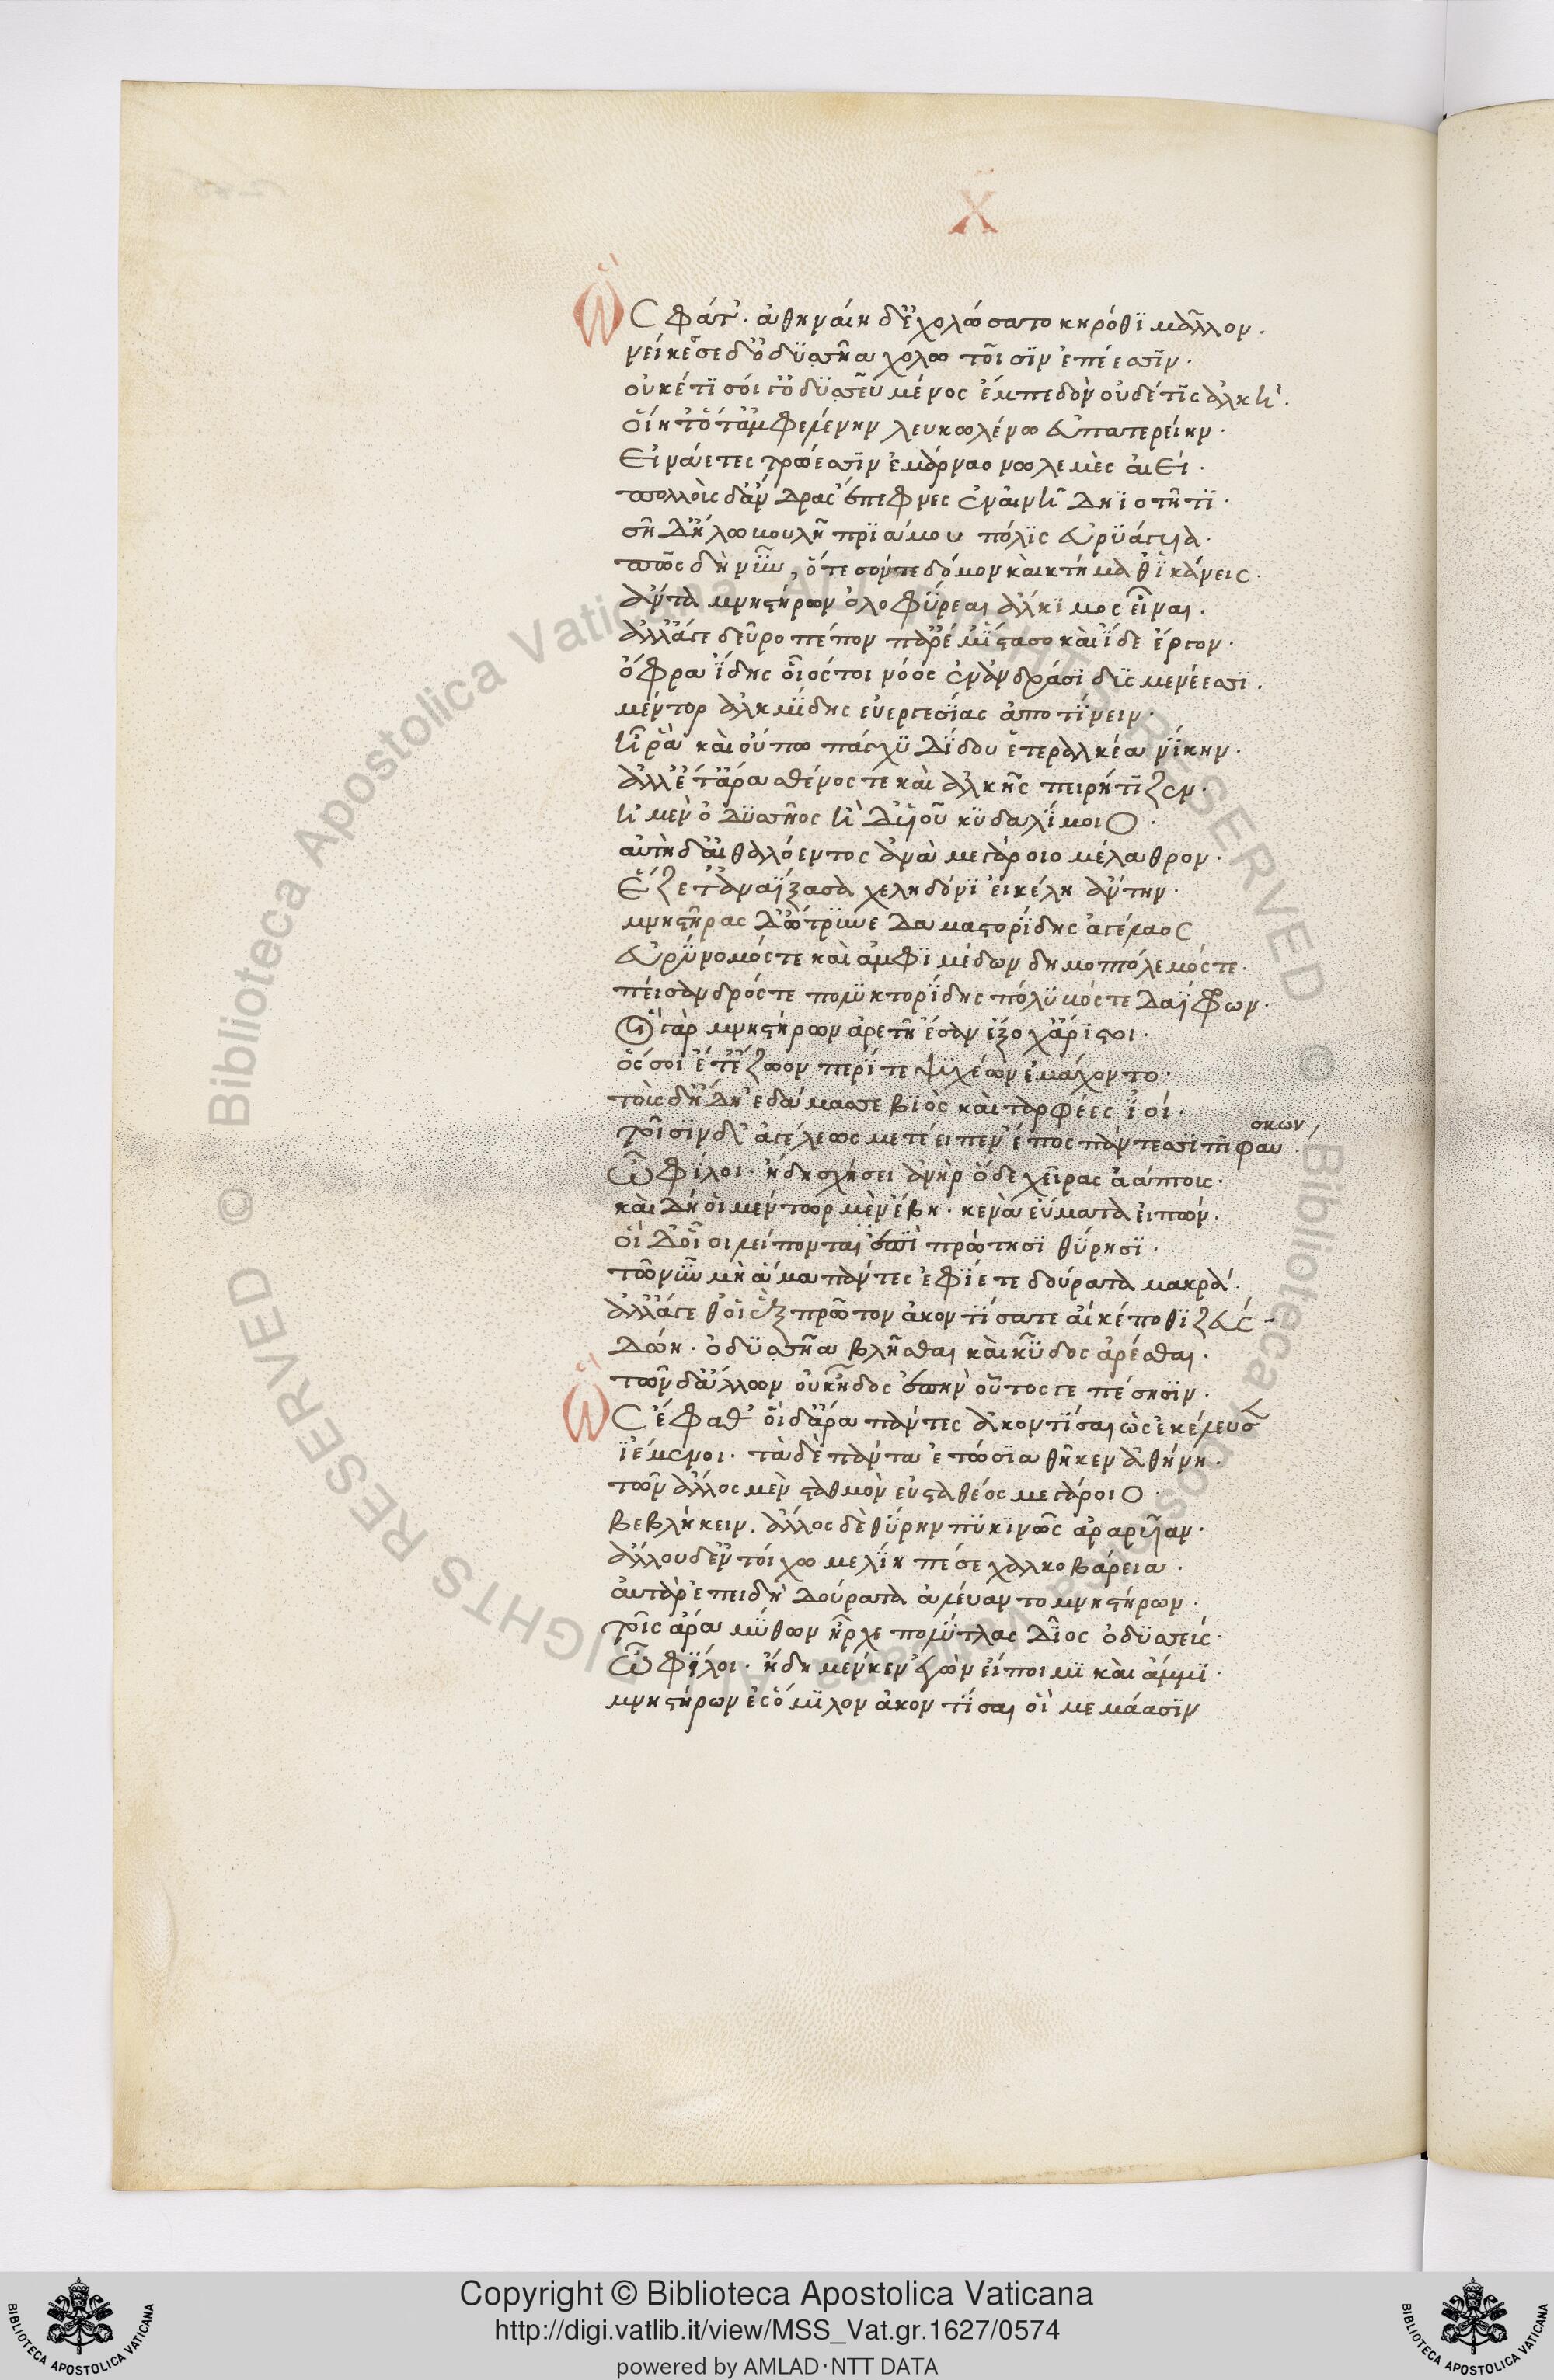 χ
Ὣς φάτ'. ἀθηναίη δ' ἐχολώσατο κηρόθϊ μᾶλλον.
νείκεσε δ' ὀδϋσσῆα χολωτοῖσϊν ἐπέεσσϊν.
οὐκέτϊ σοί γ' ὀδϋσσεῦ μένος ἔμπεδον οὐδέ τϊς ἀλκὴ.
οἵη τ' ὅτ' ἀμφ' ἑλένην λευκωλένω εὐπατερείην.
Εἰνάετες τρώεσσϊν ἐμάρναο νωλεμὲς αἰεί.
πολλοὺς δ' ἄνδρας ἔπεφνες ἐν αἰνῆ δηϊοτῆτϊ.
σῆ δ' ἥλω βουλῆ πρϊάμου πόλϊς εὐρϋάγυια.
πῶς δὴ νῦν, ὅτε σόν τε δόμον καὶ κτήμαθ' ϊκάνεις.
ἄντα μνηστήρων ὀλοφύρεαι ἄλκϊμος εἶναι.
ἀλλ' ἄγε δεῦρο πέπον παρ' ἔμ' ἵστασο καὶ ἴδε ἔργον.
ὄφρα ἴδης οἷός τοι νόος ἐν ἀνδράσϊ δϋςμενέεσσϊ.
μέντορ ἀλκϊμίδης εὐεργεσίας ἀποτίνειν.
ἦ ῥα καὶ οὔπω πάγχϋ δίδου ἑτεραλκέα νίκην.
ἀλλ' ἔτ' ἄρα σθένος τε καὶ ἀλκῆς πειρήτϊζεν.
ἠ μὲν ὀδϋσσῆος ἠδ' υἱοῦ κϋδαλίμοιο.
αὐτὴ δ' αἰθαλόεντος ἀνὰ μεγάροιο μέλαθρον.
Ἕζετ' ἀναΐξασα χελιδόνϊ εἰκέλη ἄντην.
μνηστῆρας δ' ὤτρϋνε δαμαστορίδης ἀγέλαος
εὐρύνομός τε καὶ ἀμφϊμέδων δημοπόλεμός τε.
πείσανδρός τε πολϋκτορίδης πόλϋβός τε δαΐφρων.
Οἱ γὰρ μνηστήρων ἀρετῆ ἔσαν ἔξοχ' ἄριστοι.
ὅσσοι ἔτ' ἔζωον περί τε ψϋχέων ἐμάχοντο.
τοὺς δ' ἤδη ἐδάμασσε βϊὸς καὶ ταρφέες ἰοί.
τοῖσιν δ' ἀγέλεως μετέειπεν ἔπος πάντεσσϊ πϊφαυ
σκων
Ὦ φίλοι. ἤδη σχήσει ἀνὴρ ὅδε χεῖρας ἀάπτους.
καὶ δή οἱ μέντωρ μὲν ἔβη. κενὰ εὔματα εἰπών.
οἱ δ' οἶοι λείπονται ἐπὶ πρώτησϊ θύρησϊ.
τῶ νῦν μὴ ἅμα πάντες ἐφίετε δούρατα μακρά.
ἀλλ' ἄγεθ' οἱ ἓξ πρῶτον ἀκοντίσατε αἴ κέ ποθϊ ζεύς
δώη. ὀδϋσσῆα βλῆσθαι καὶ κῦδος ἀρέσθαι.
τῶν δ' ἄλλων οὐ κῆδος ἐπὴν οὗτός γε πέσησϊν.
Ὣς ἔφαθ' οἱ δ' ἄρα πάντες ἀκόντϊσαν ὡς ἐκέλευσ
ϊέμενοι. τὰ δὲ πάντα ἐτώσϊα θῆκεν ἀθήνη.
τῶν ἄλλος μὲν σταθμὸν εὐσταθέος μεγάροιο.
βεβλήκειν. ἄλλος δὲ θύρην πϋκϊνῶς ἀραρυῖαν.
ἄλλου δ' ἐν τοίχω μελίη πέσε χαλκοβάρεια.
αὐτὰρ ἐπειδὴ δούρατα ἀλέυαντο μνηστήρων.
τοῖς ἄρα μύθων ἦρχε πολύτλας δῖος ὀδϋσσεύς.
Ὦ φίλοι. ἤδη μέν κεν ἐγὼν εἴποιμϊ καὶ ἄμμϊ.
μνηστήρων ἐς ὅμϊλον ἀκοντίσαι οἳ μεμάασϊν
© Biblioteca Apostolica Vaticana ALL RIGHTS RESERVED
© Biblioteca Apostolica Vaticana ALL RIGHTS RESERVED
Copyright © Biblioteca Apostolica Vaticana
http://digi.vatlib.it/view/MSS_Vat.gr.1627/0574
powered by AMLAD·NTT DATA
BIBLIOTECA APOSTOLICA VATICANA
BIBLIOTECA APOSTOLICA VATICANA